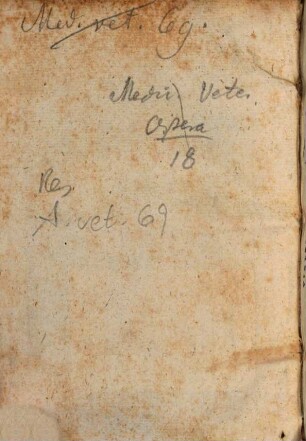 Med. vet. 69.
Medici Vete.
Opera
18
Res
A. vet. 69